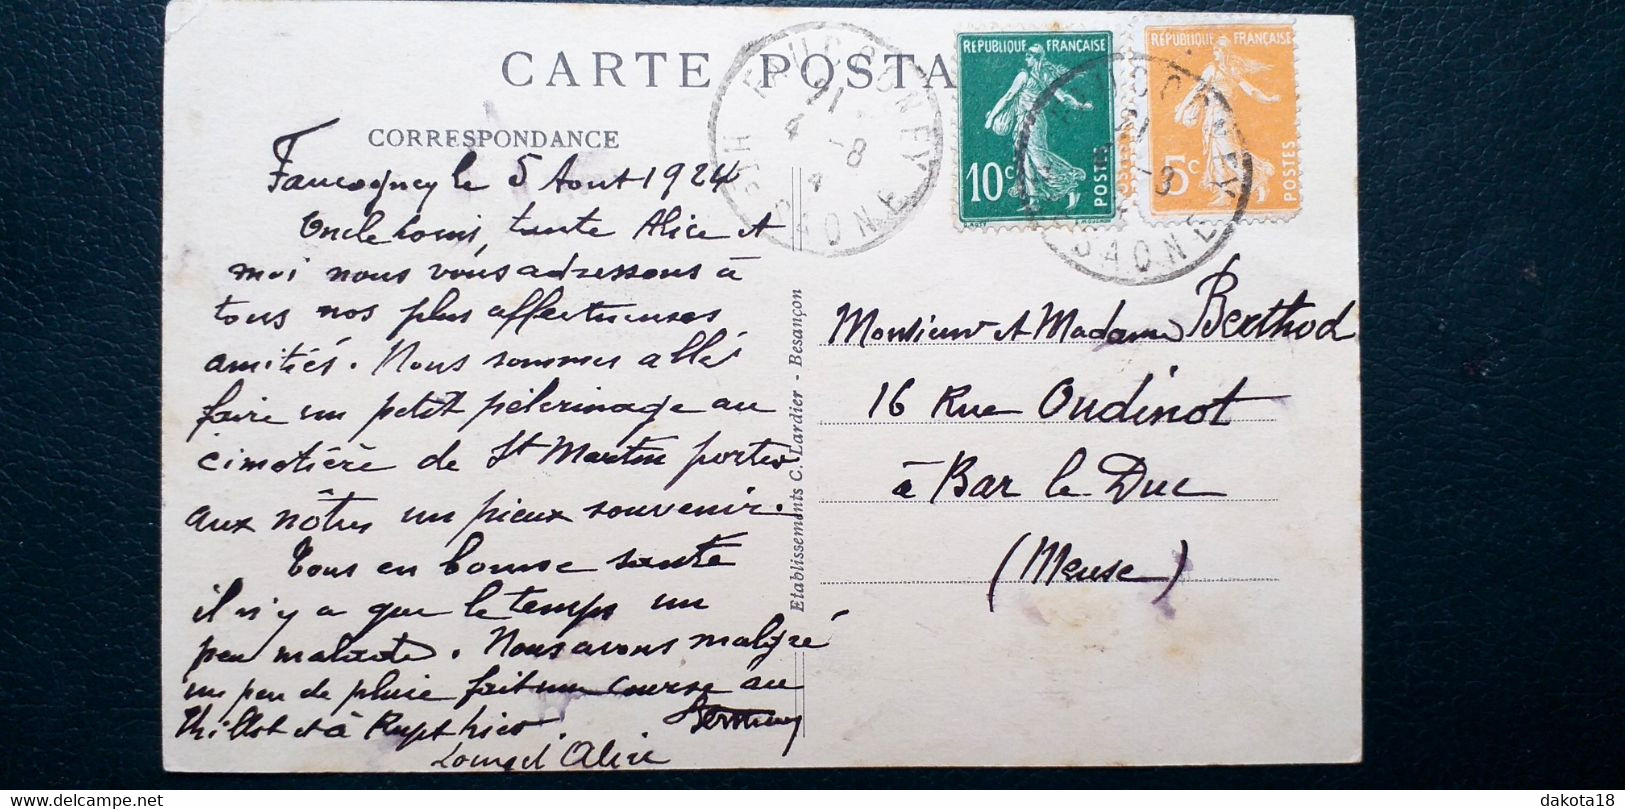 CARTE POSTA
CORRESPONDANCE
Faucogney le 5 Aout 1924
Oncle Louis, tante Alice et
moi nous vous adressons à
tous nos plus affectueuses
amitiés. Nous sommes allé
faire un petit pélerinage au
cimetière de St Martin porter
aux nôtres un pieux souvenir.
Tous en bonne sante
il n'y a que le temps un
peu malade. Nous avons malgré
un peu de pluie fait une course au
Thillot et à Rupt hier.
Louis et Alice
FAUCOGNEY
21
4 -8
Hte SAONE
REPUBLIQUE FRANÇAISE
10c
POSTES
REPUBLIQUE FRANÇAISE
5c
POSTES
SAONE
Etablissements C. Lardier - Besançon
Monsieur et Madame Berthod
16 Rue Oudinot
à Bar le Duc
(Meuse)
http://www.delcampe.net
dakota18